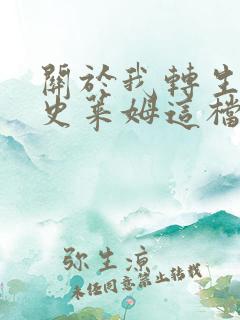 關於我轉生
史萊姆這檔
弥生凉
未经同意禁止转载